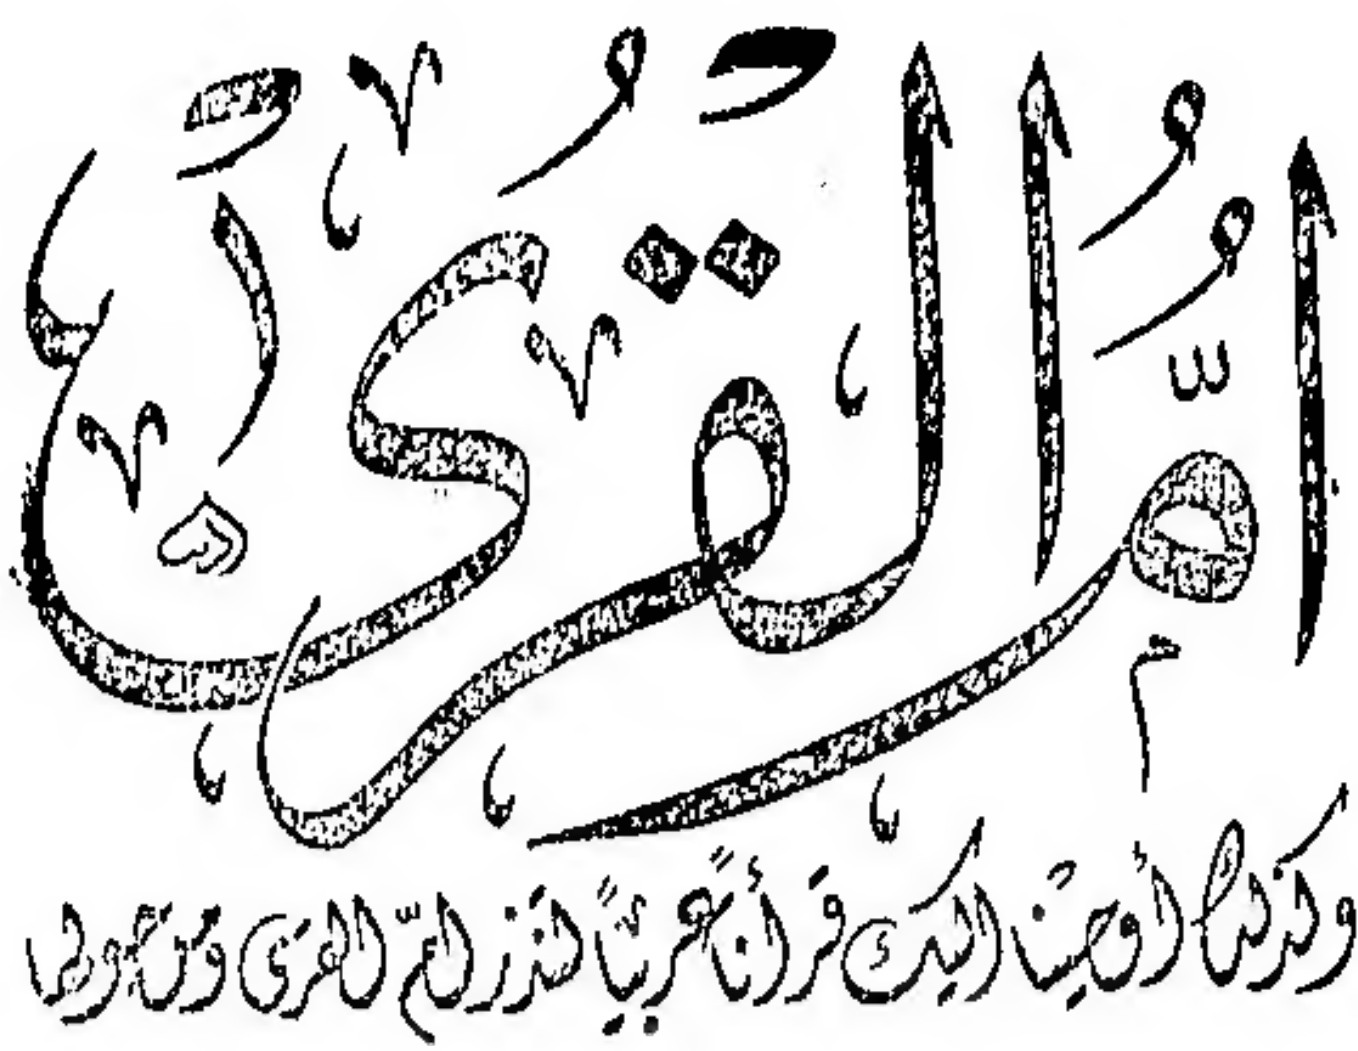 أُمُّ الْقُرَى
وكذلك أوحينا اليك قرأنًا عربيًّا لتنذر امّ القرى ومن حولها